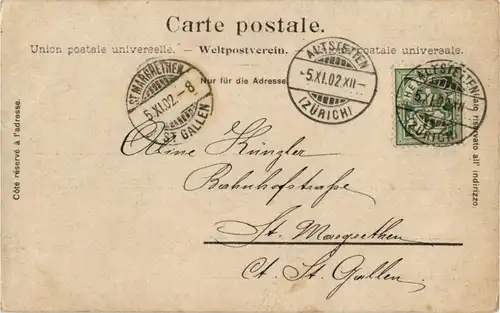 Carte postale.
Union postale universelle. — Weltpostverein. — Unione postale universale.
Nur für die Adresse.
ALTSTETTEN
-5.XI.02.XII-
(ZÜRICH)
ST. MARGRETHEN
5.XI.02.-8
ST. GALLEN
ALTSTETTEN
-5.XI.02.XII-
(ZÜRICH)
Côté réservé à l'adresse.
Lato riservato all' indirizzo.
Künzler
Bahnhofstraße
St. Margrethen
Ct. St. Gallen.